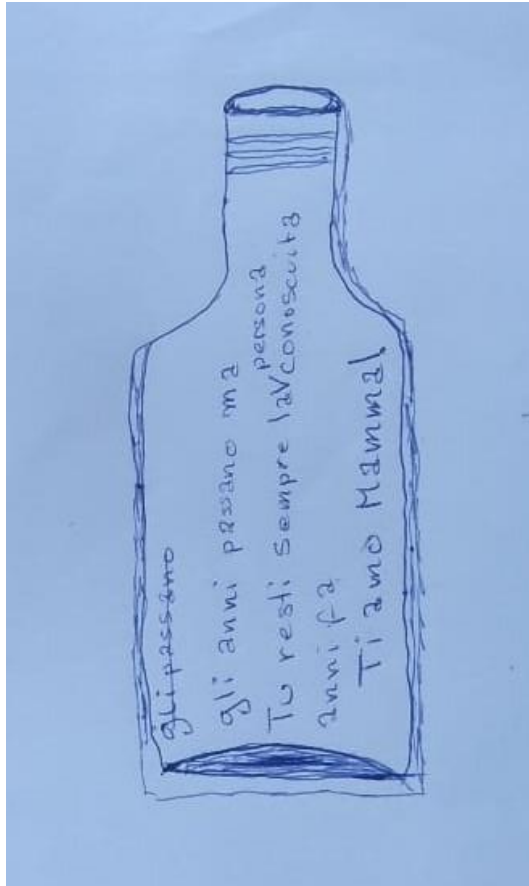 gli passano
gli anni passano ma
Tu resti sempre la persona conosciuta
anni fa
Ti amo Mamma!